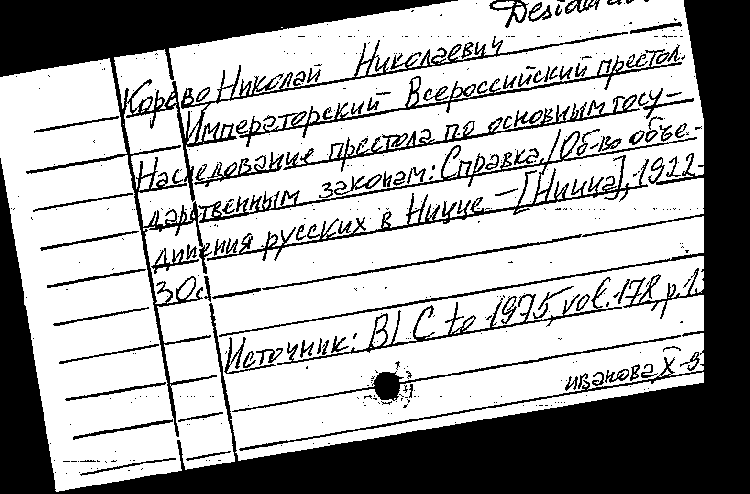 Desidera
Корево Николай Николаевич
Императорский Всероссийский престол.
Наследование престола по основным госу-
дарственным законам: Справка./Об-во объе-
динения русских в Ницце.—[Ницца], 1922-
30с.
Источник: BLC to 1975, vol. 178, p. 13
иванова, X-9